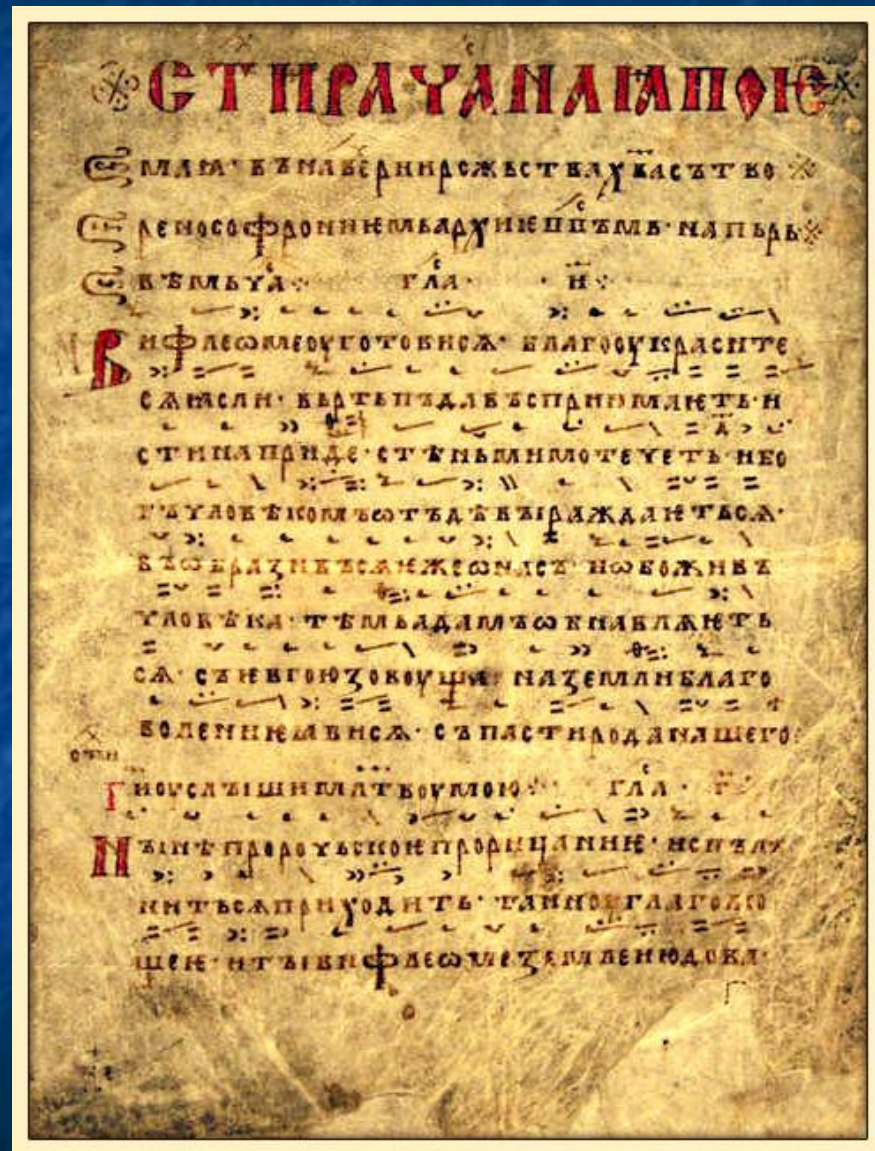 СТИРАЧАНАꙖПОѤ
МАꙖ· ВЪНАВЕРИИРОЖЬСТВАХ҃ВАСЪТВО
РЕНОСОФРОНИѤМЬАРХИѤПП҃ЪМЬ·НАПЬРЬ
ВѢМЬЧА· ГЛА· И҃
ВИФЛЕѠМЕОУГОТОВИСѦ· БЛАГООУКРАСИТЕ
СѦꙖСЛИ· ВЬРТЬПЪДАВЪСПРИИМАѤТЬ·И
СТИНАПРИДЕ·СТѢНЬМИМОТЕЧЕТЬ·ИБО
ГЪЧЛОВѢКОМЪѠТЪДѢВꙐРАЖДАѤТЬСѦ·
ВЪѠБРАЗИВЪСѦѤЖЕѠНАСЪ·ИѠБОЖИВЪ
ЧЛОВѢКА·ТѢМЬАДАМЪѠБНАВЛѦѤТЬ
СѦ·СЪѤВГОЮЗОВОУЩА·НАЗЕМЛИБЛАГО
ВОЛЕНИѤꙖВИСѦ·СЪПАСТИРОДАНАШЕГО
ГИОУСЛꙐШИМЛ҃ТВОУМОЮ· ГЛА· Г҃
НꙐНѢПРОРОЧЬСКОѤПРОРИЦАНИѤ·ИСПЪЛ
НИТЬСѦПРИХОДИТЬ·ТАИНОѤГЛАГОЛЮ
ЩЕѤ·ИТꙐВИФЛЕѠМЕЗЕМЛЕИЮДОВА·